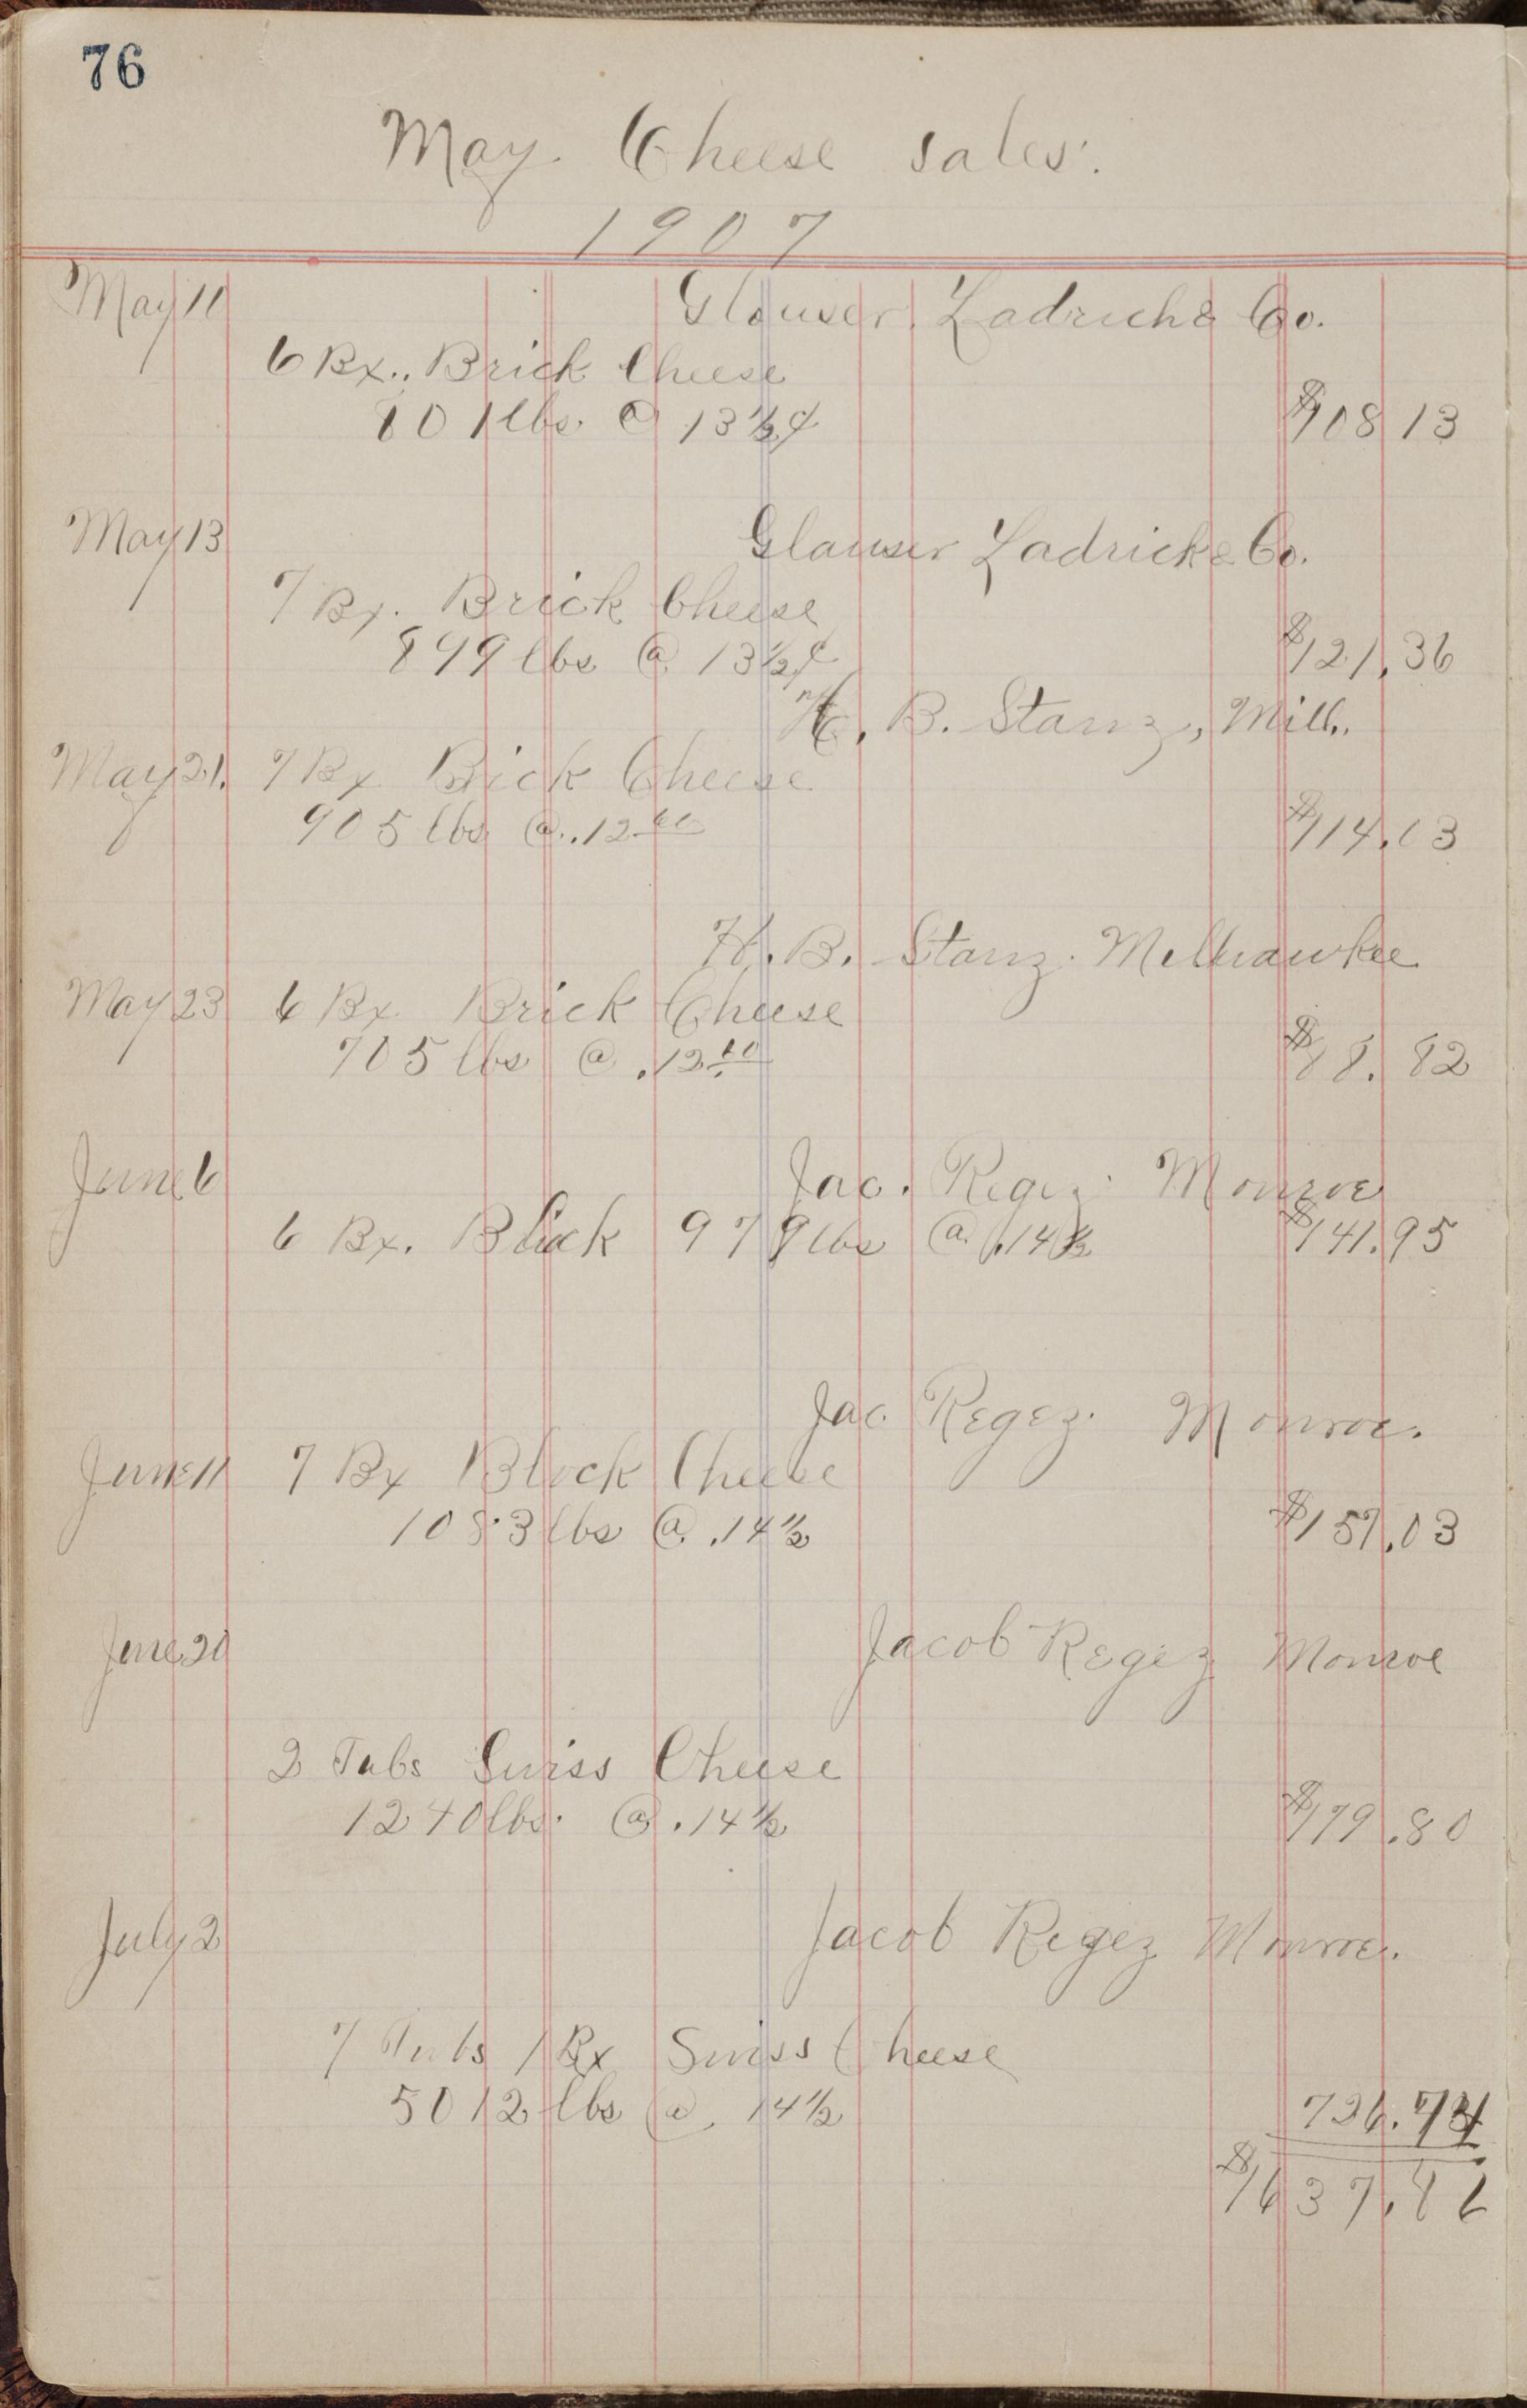 76
May Cheese sales.
1907
May 10 Glauser Ladrich & Co.
6 Bx. Brick Cheese
801 lbs @ 13½¢ $108 13
May 13 Glauser Ladrick & Co.
7 Bx. Brick Cheese
899 lbs @ 13½¢ $121.36
H. B. Stanz, Mill.
May 21. 7 Bx Brick Cheese
905 lbs @ .12 60 $114.03
H. B. Stanz. Melhawkee
May 23 6 Bx. Brick Cheese
705 lbs @ .12 60 $88.82
June 6 Jac. Regez Monroe
6 Bx. Block 979 lbs @ .14½ $141.95
Jac. Regez. Monroe.
June 11 7 Bx Block Cheese
1083 lbs @ .14½ $157.03
June 20 Jacob Regez Monroe
2 Tubs Swiss Cheese
1240 lbs. @ .14½ $179.80
July 2 Jacob Regez Monroe.
7 Tubs 1 Bx Swiss Cheese
5012 lbs @ .14½ 726.74
$1637.86